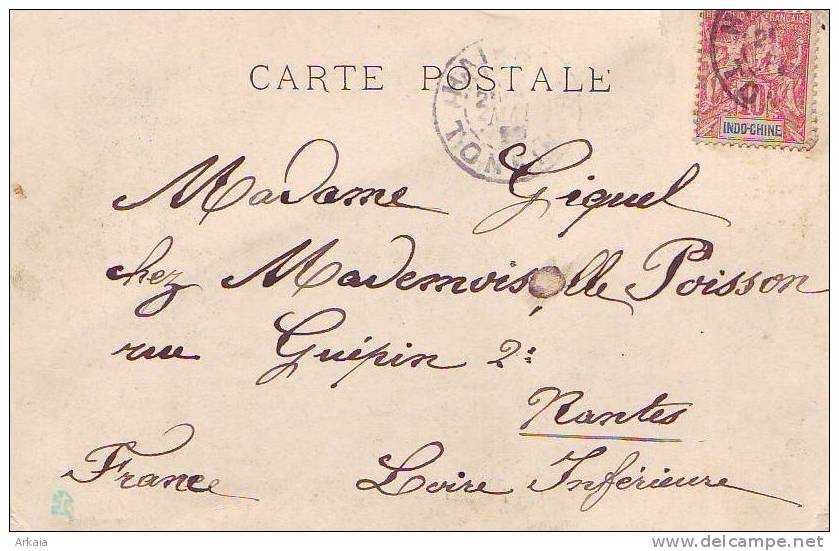 CARTE POSTALE
INDO-CHINE
10
Madame Giquel
chez Mademoiselle Poisson
rue Guépin 2
Nantes
France Loire Inférieure
Arkaia
delcampe.net